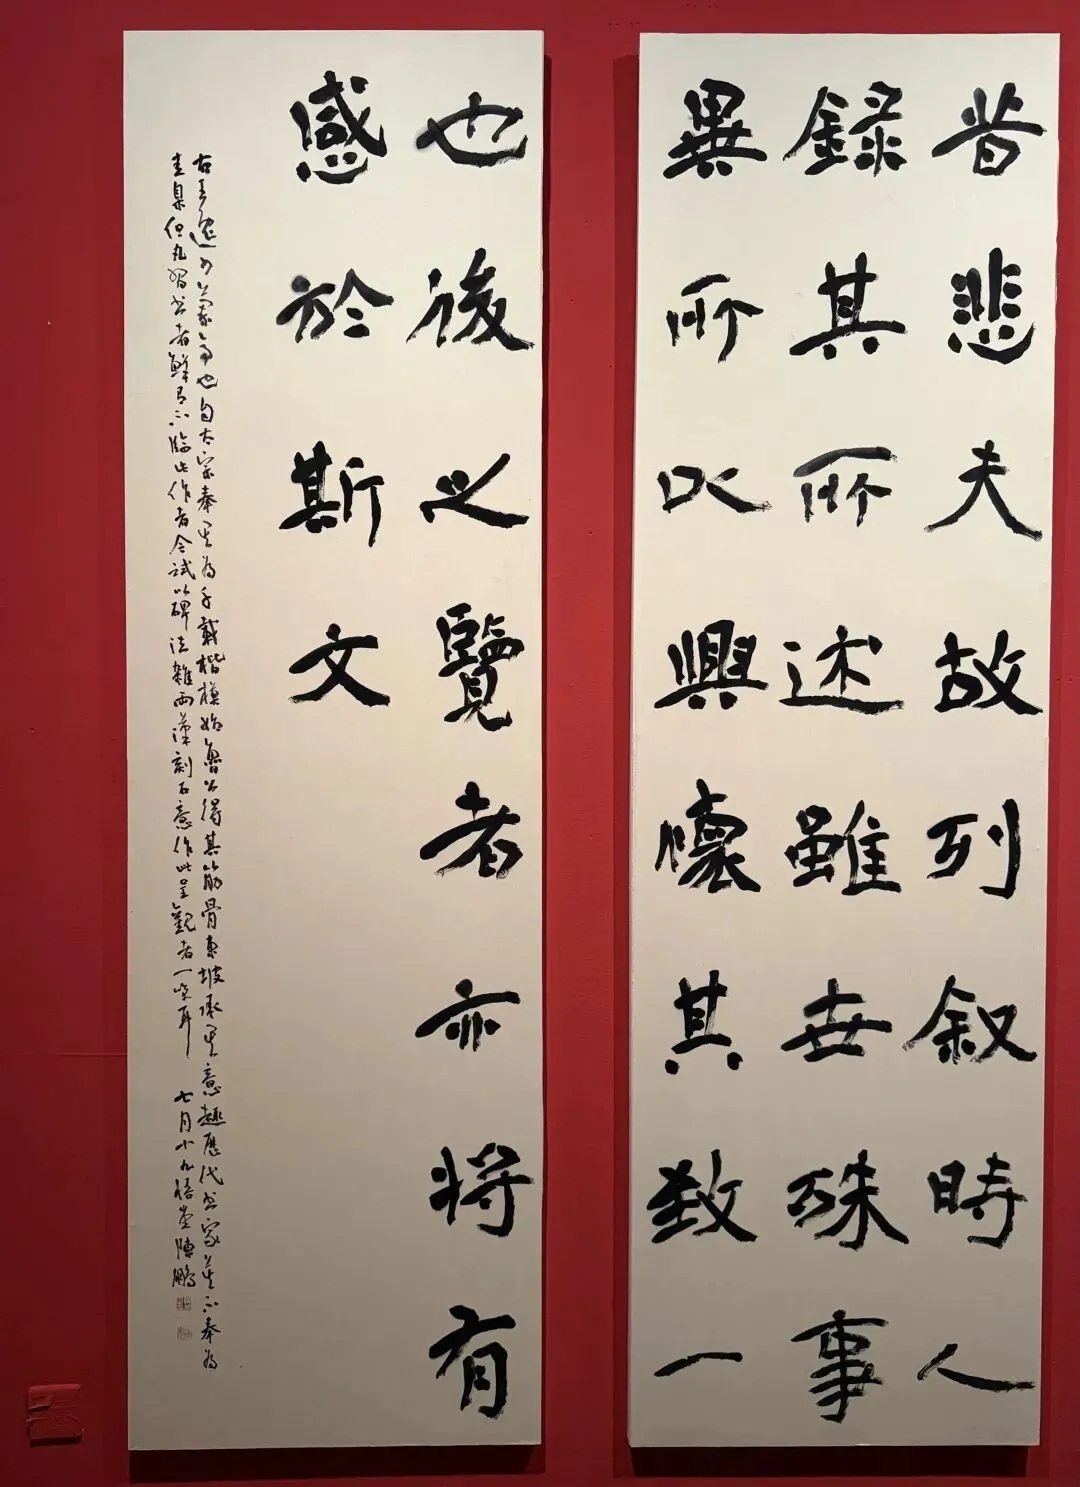 昔悲夫故列叙時人
錄其所述雖世殊事
異所以興懷其致一
也後之覽者亦將有
感於斯文
右王逸少蘭亭也自太宗奉其為千載楷模始魯公得其筋骨東坡承其意趣歷代書家莫不奉為
圭臬但凡習書者鮮有不臨此作者今試以碑法雜兩漢刻石意作此呈觀者一笑耳 七月十九陳鵬